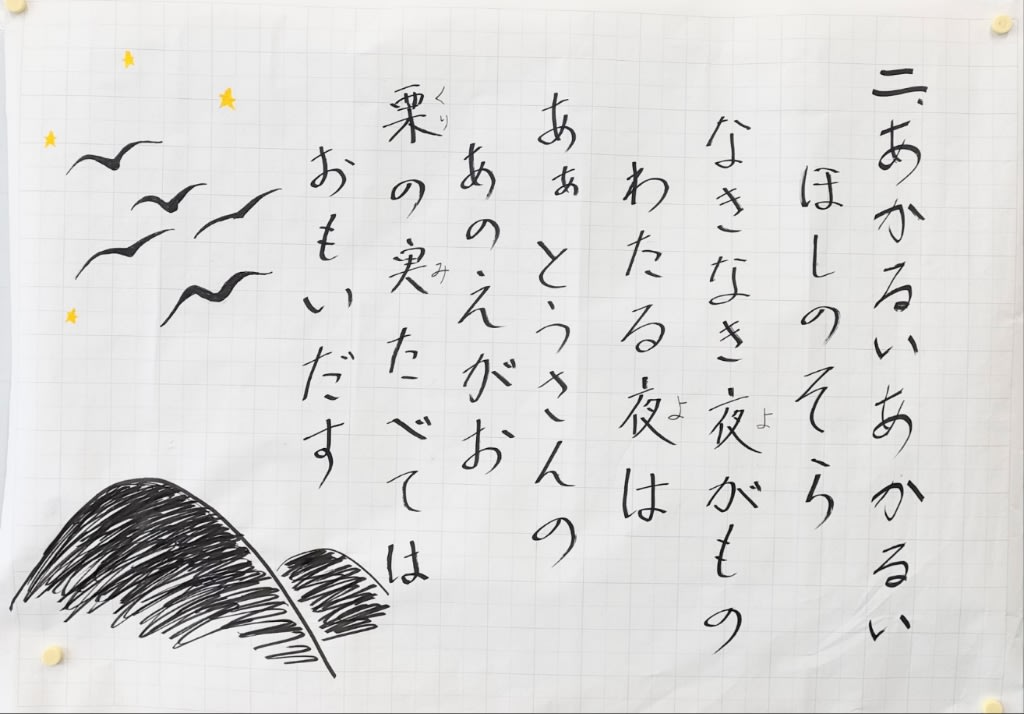 二、あかるいあかるい
ほしのそら
なきなき夜がもの
わたる夜は
あぁとうさんの
あのえがお
栗の実たべては
おもいだす